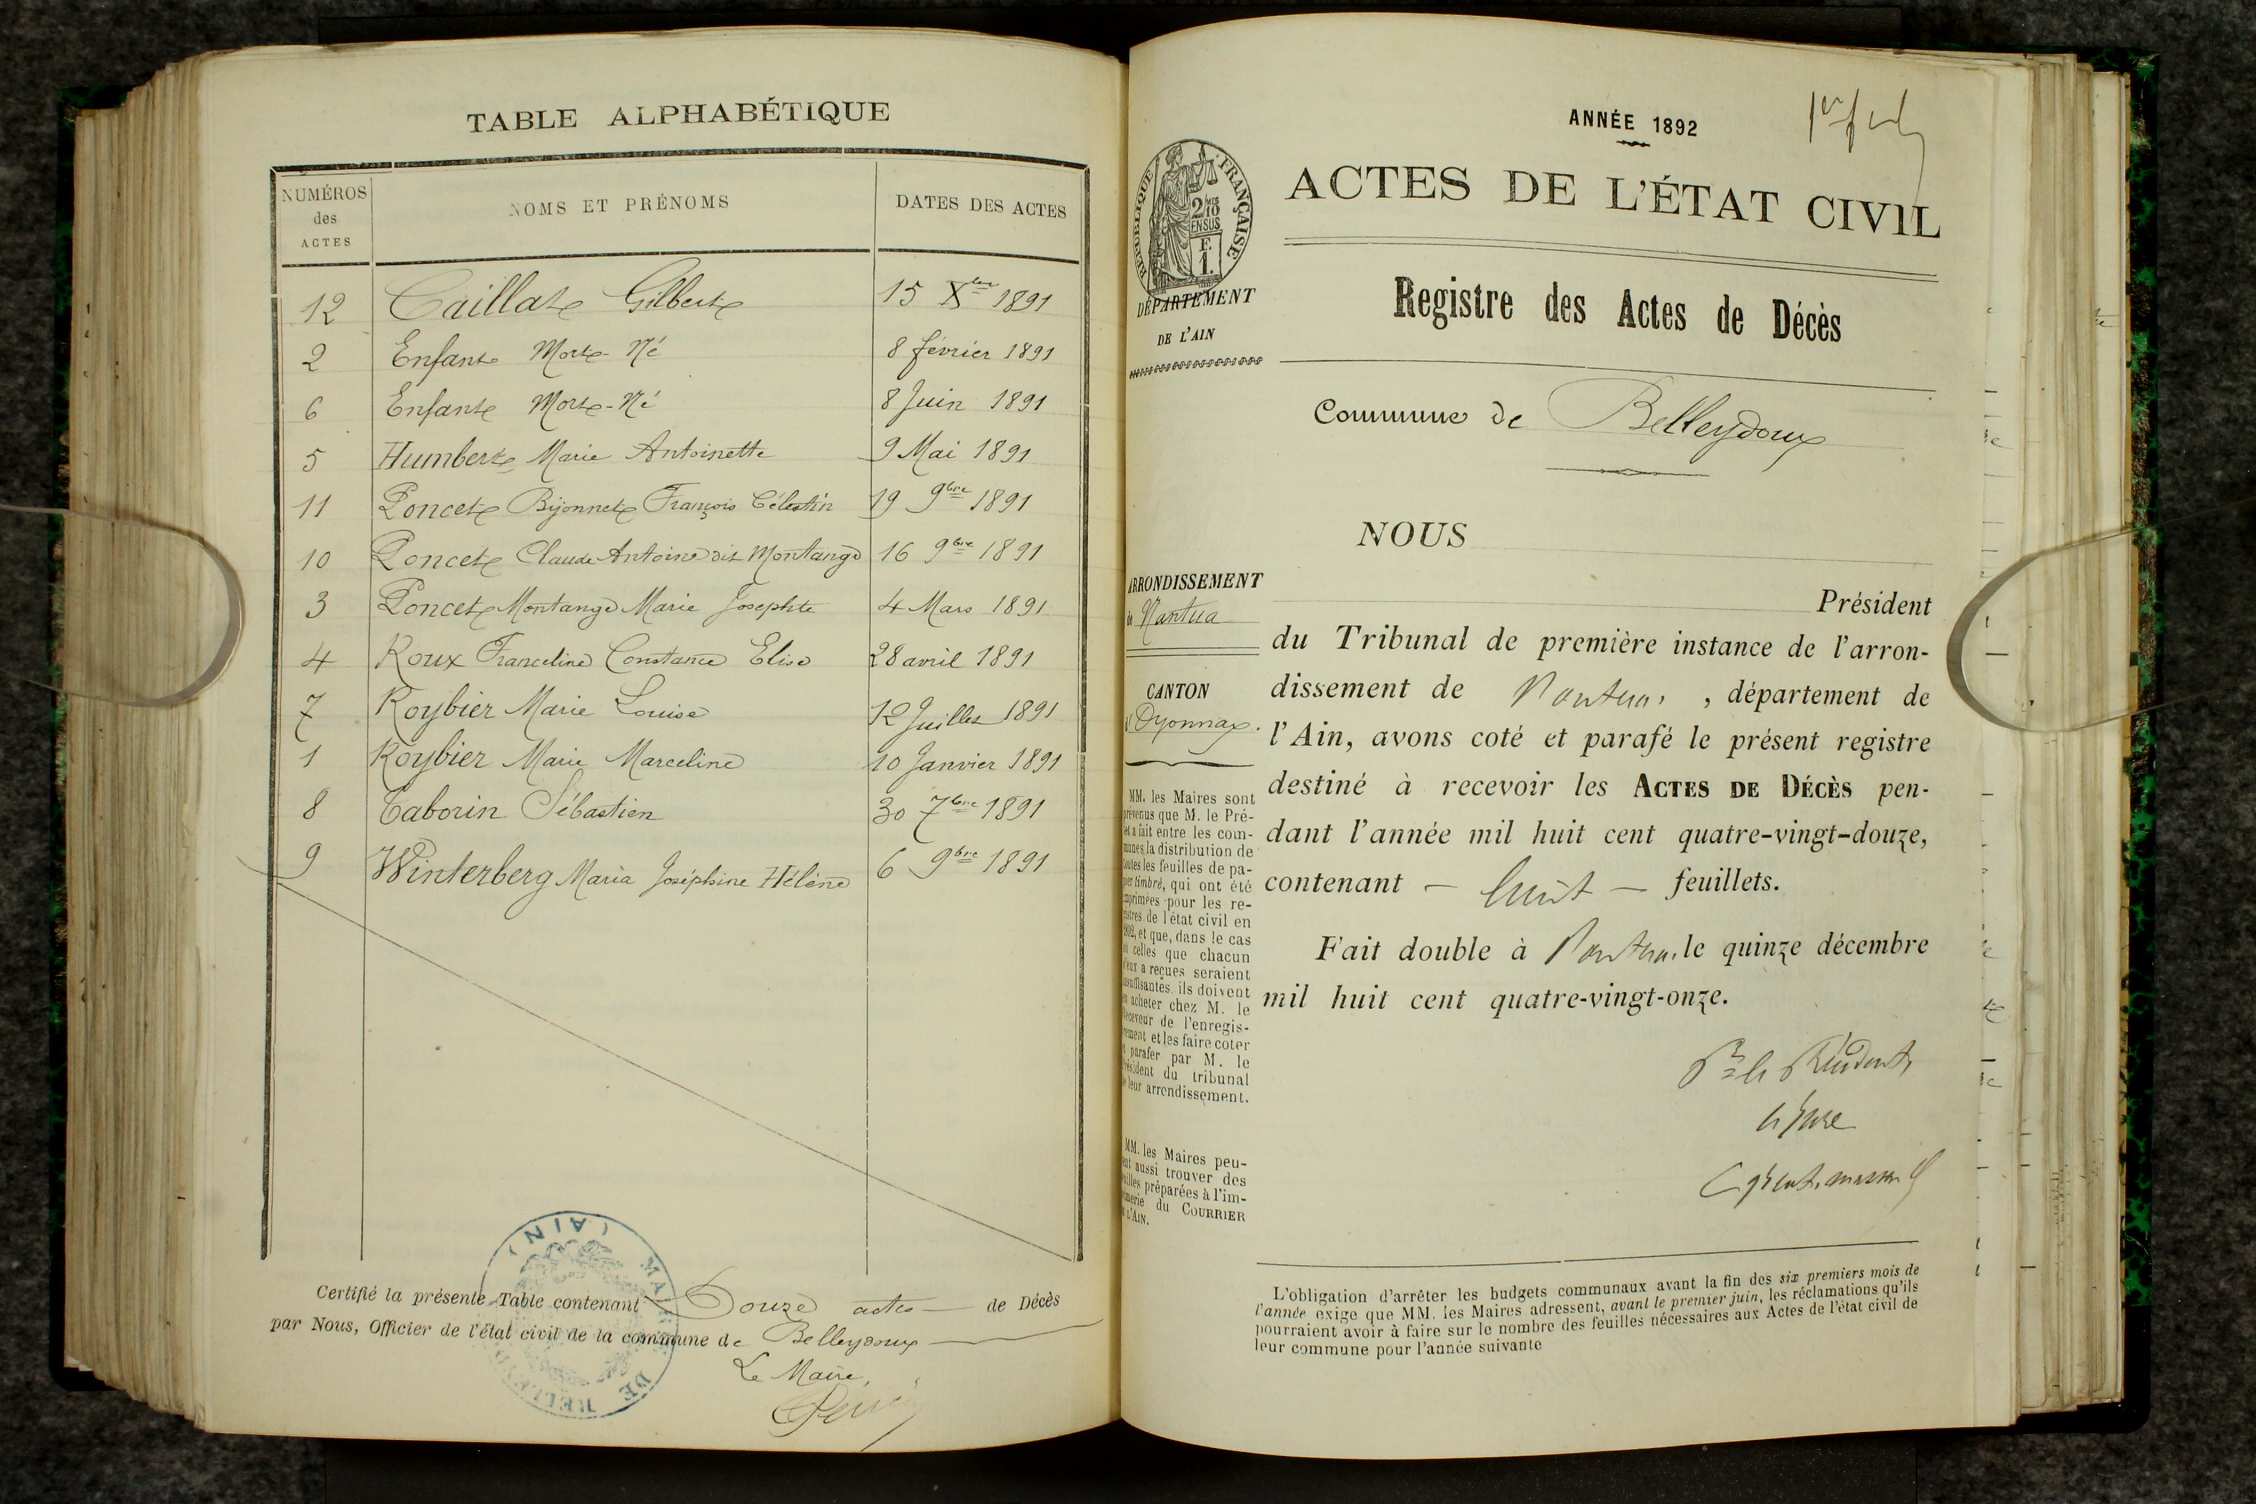 TABLE ALPHABÉTIQUE
NUMÉROS des ACTES NOMS ET PRÉNOMS DATES DES ACTES
12 Caillat Gilbert 15 Xbre 1891
2 Enfant Mort-Né 8 février 1891
6 Enfant Mort-Né 8 Juin 1891
5 Humbert Marie Antoinette 9 Mai 1891
11 Poncet Bijonnet François Célestin 19 9bre 1891
10 Poncet Claude Antoine dit Montange 16 9bre 1891
3 Poncet Montange Marie Josephte 4 Mars 1891
4 Roux Franceline Constance Elise 28 avril 1891
7 Roybier Marie Louise 12 Juillet 1891
1 Roybier Marie Marceline 10 Janvier 1891
8 Taborin Sébastien 30 7bre 1891
9 Winterberg Maria Joséphine Hélène 6 9bre 1891
Certifié la présente Table contenant Douze actes de Décès
par Nous, Officier de l'état civil de la commune de Belleydoux
Le Maire,
(AIN) DE
ANNÉE 1892
RÉPUBLIQUE FRANÇAISE
2/10 EN SUS
F. 1.
ACTES DE L'ÉTAT CIVIL
DÉPARTEMENT
DE L'AIN
Registre des Actes de Décès
Commune de Belleydoux
NOUS
ARRONDISSEMENT
de Nantua
CANTON
d'Oyonnax.
Président
du Tribunal de première instance de l'arron-
dissement de Nantua, département de
l'Ain, avons coté et parafé le présent registre
destiné à recevoir les ACTES DE DÉCÈS pen-
dant l'année mil huit cent quatre-vingt-douze,
contenant — huit — feuillets.
Fait double à Nantua, le quinze décembre
mil huit cent quatre-vingt-onze.
Pr le Président,
le Juge
MM. les Maires sont
prévenus que M. le Pré-
fet a fait entre les com-
munes la distribution de
toutes les feuilles de pa-
pier timbré, qui ont été
imprimées pour les re-
gistres de l'état civil en
1892, et que, dans le cas
où celles que chacun
d'eux a reçues seraient
insuffisantes, ils doivent
en acheter chez M. le
Receveur de l'enregis-
rement et les faire coter
et parafer par M. le
Président du tribunal
de leur arrondissement.
MM. les Maires peu-
vent aussi trouver des
feuilles préparées à l'im-
primerie du COURRIER
DE L'AIN.
L'obligation d'arrêter les budgets communaux avant la fin des six premiers mois de
l'année exige que MM. les Maires adressent, avant le premier juin, les réclamations qu'ils
pourraient avoir à faire sur le nombre des feuilles nécessaires aux Actes de l'état civil de
leur commune pour l'année suivante